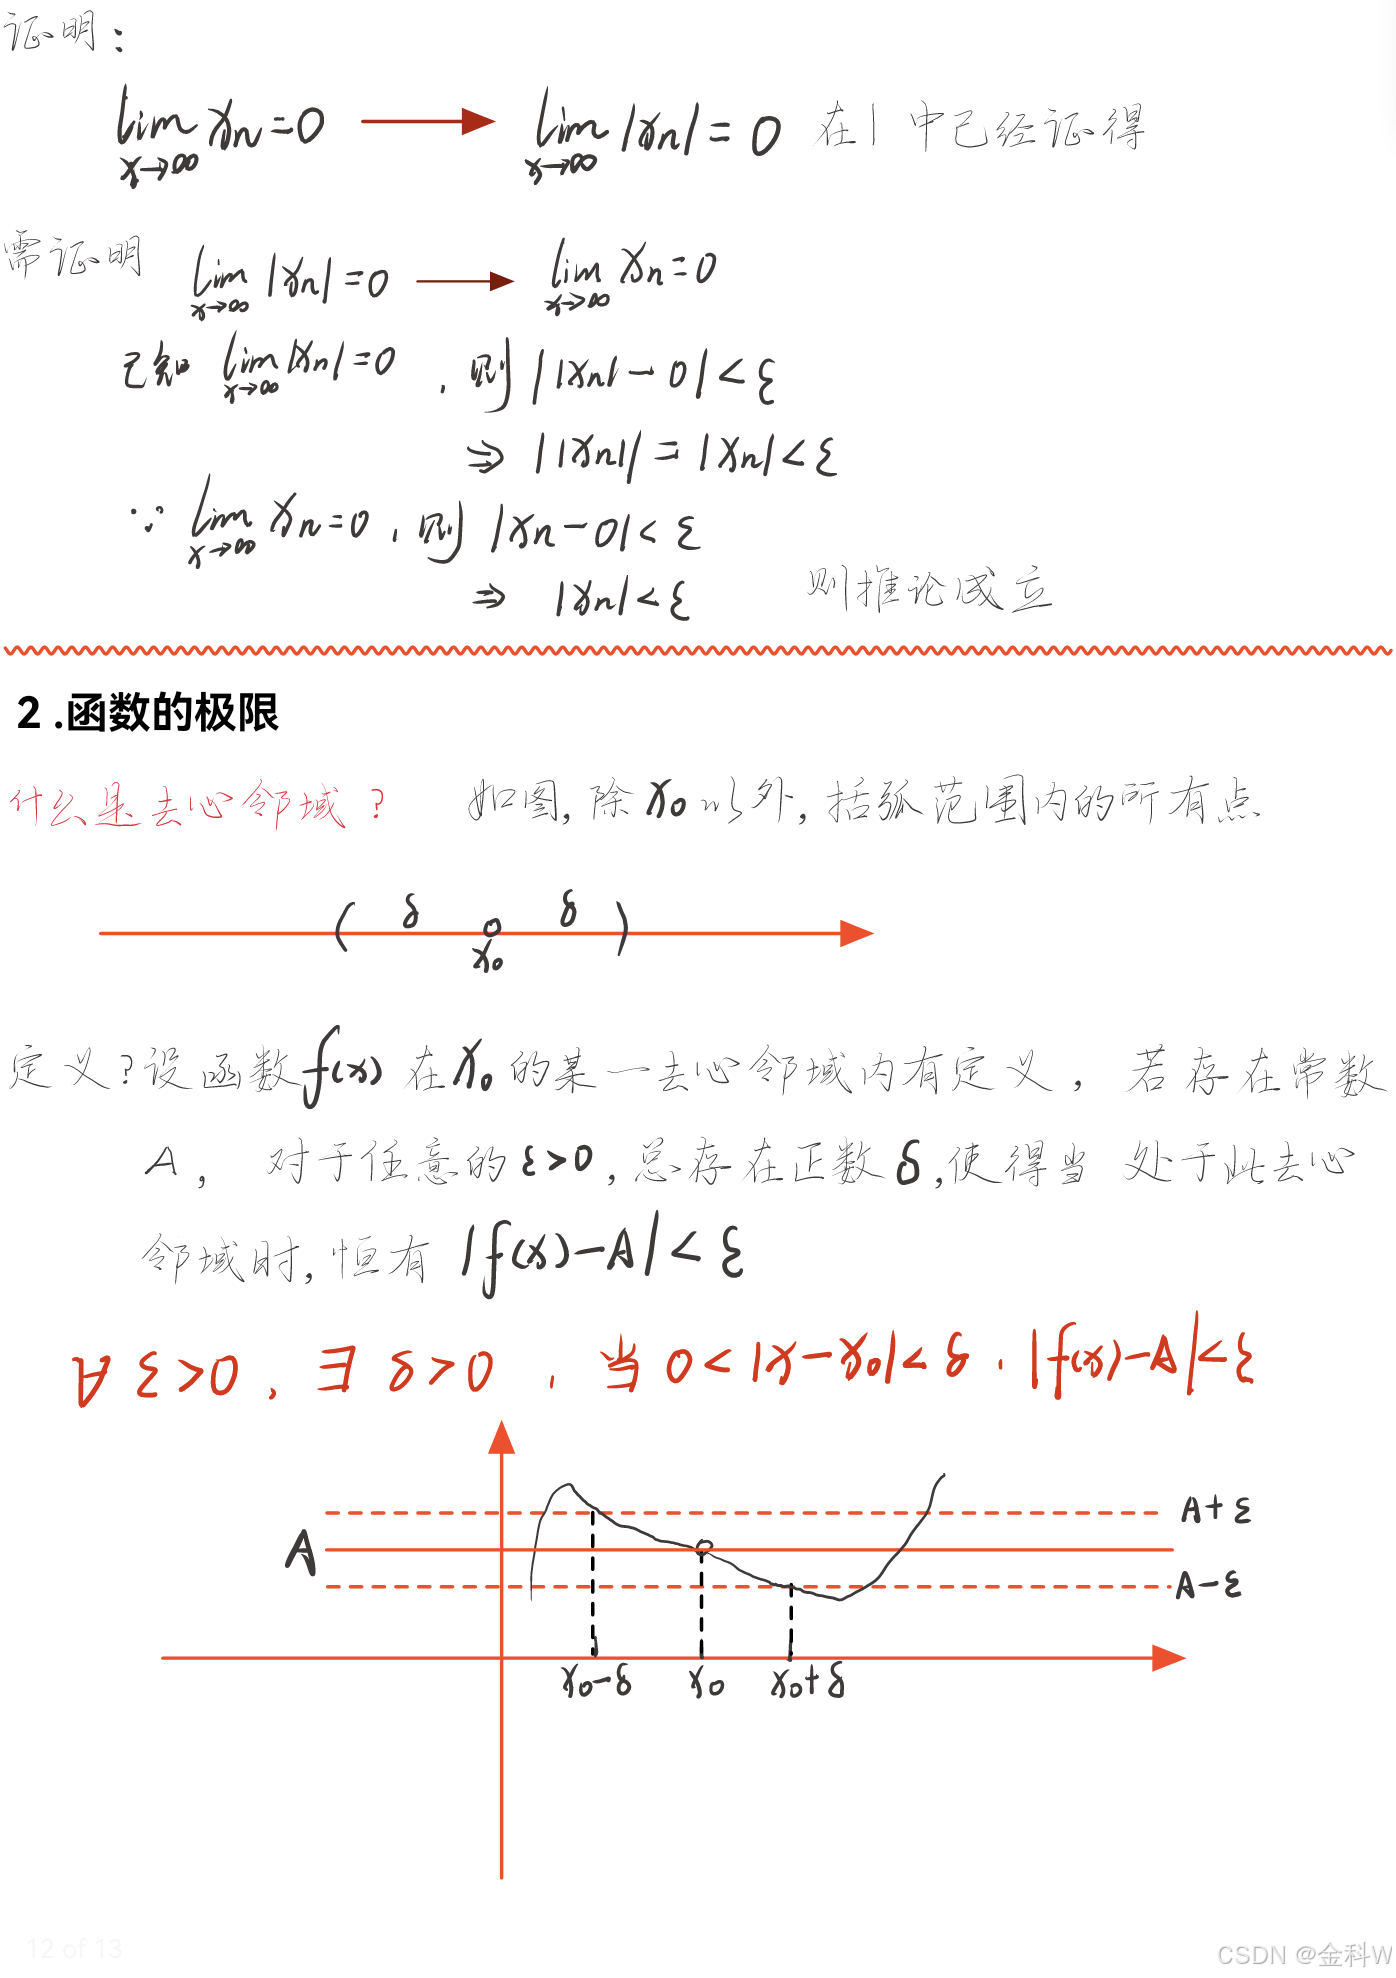 证明：
lim x→∞ xn=0 → lim x→∞ |xn|=0 在1中已经证得
需证明 lim x→∞ |xn|=0 → lim x→∞ xn=0
已知 lim x→∞ |xn|=0，则 ||xn|-0|<ε
⇒ ||xn||=|xn|<ε
∵ lim x→∞ xn=0，则 |xn-0|<ε
⇒ |xn|<ε 则推论成立
2 .函数的极限
什么是去心邻域？ 如图,除x₀以外,括弧范围内的所有点
( δ δ )
x₀
定义？设函数f(x)在x₀的某一去心邻域内有定义，若存在常数
A，对于任意的ε>0,总存在正数δ,使得当 处于此去心
邻域时,恒有 |f(x)-A|<ε
∀ ε>0，∃ δ>0，当 0<|x-x₀|<δ，|f(x)-A|<ε
A+ε
A
A-ε
x₀-δ x₀ x₀+δ
12 of 13
CSDN @金科W